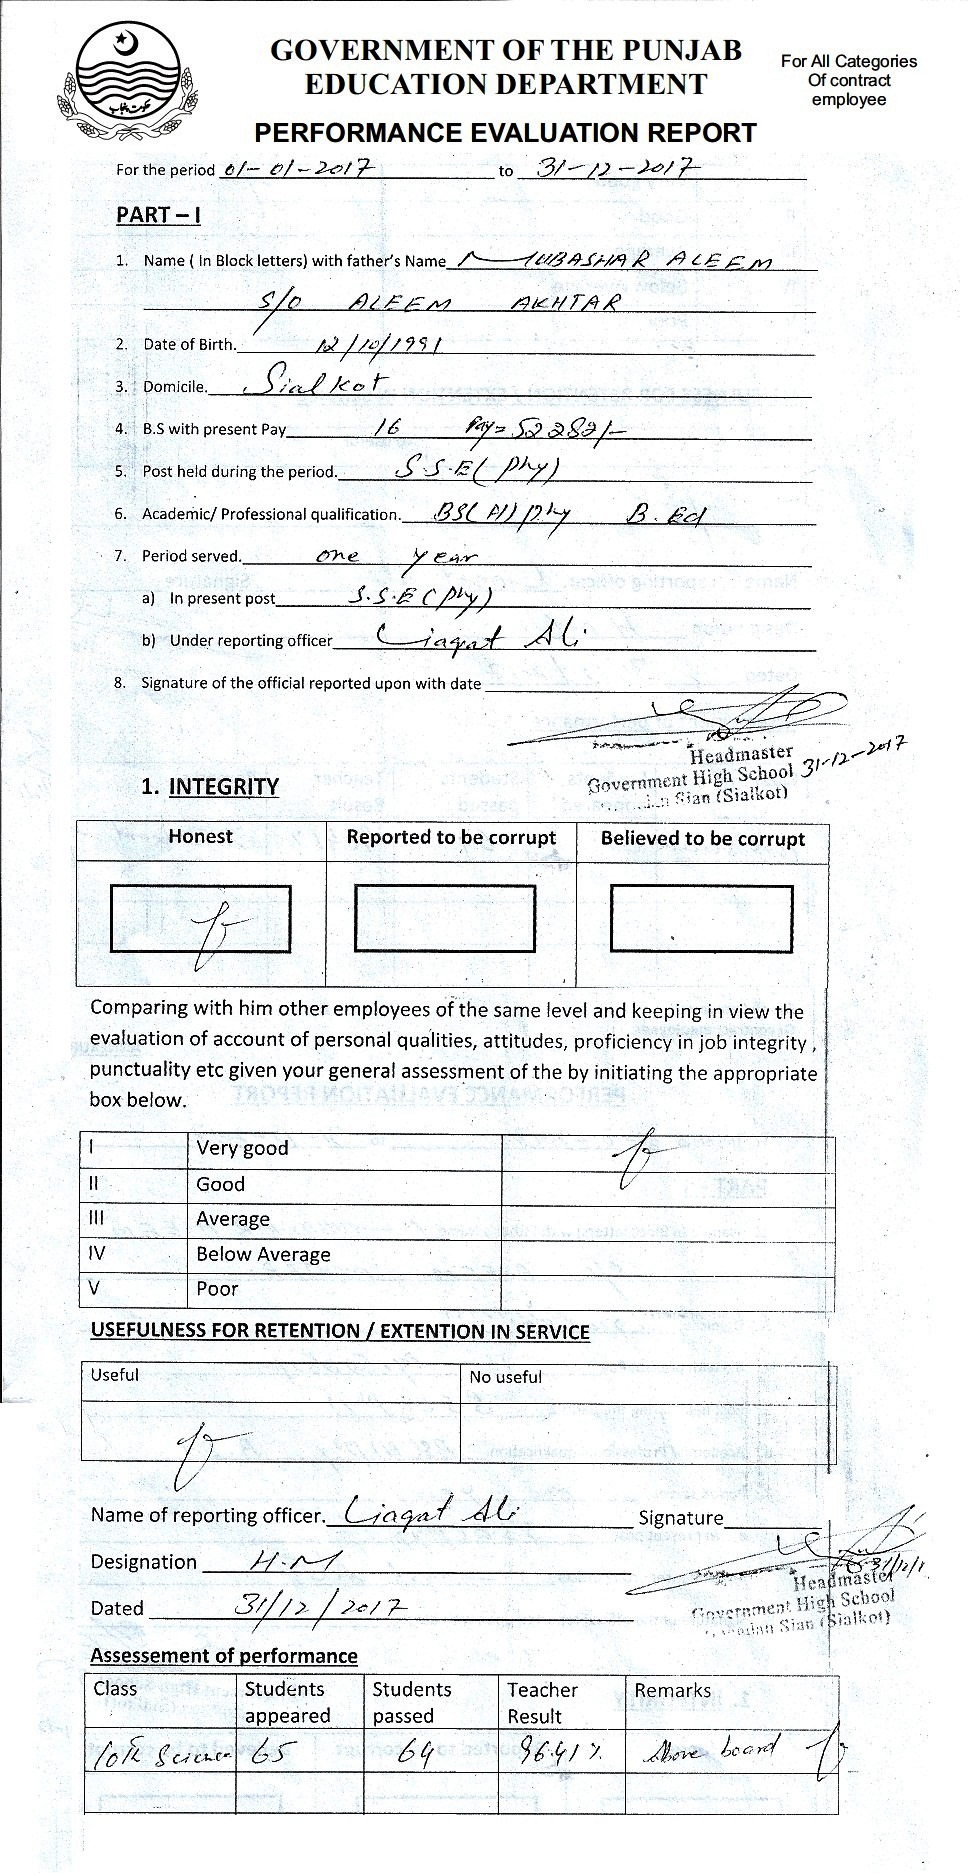 GOVERNMENT OF THE PUNJAB
EDUCATION DEPARTMENT
For All Categories
Of contract
employee
حکومت پنجاب
PERFORMANCE EVALUATION REPORT
For the period 01-01-2017 to 31-12-2017
PART – I
1. Name ( In Block letters) with father's Name MUBASHAR ALEEM
S/O ALEEM AKHTAR
2. Date of Birth. 12/10/1991
3. Domicile. Sialkot
4. B.S with present Pay 16 Pay= 52282/-
5. Post held during the period. S.S.E( Phy)
6. Academic/ Professional qualification. BS(H) Phy B.Ed
7. Period served. one year
a) In present post S.S.E (Phy)
b) Under reporting officer Liaqat Ali
8. Signature of the official reported upon with date
Headmaster
Government High School 31-12-2017
Sian (Sialkot)
1. INTEGRITY
Honest Reported to be corrupt Believed to be corrupt
Comparing with him other employees of the same level and keeping in view the
evaluation of account of personal qualities, attitudes, proficiency in job integrity ,
punctuality etc given your general assessment of the by initiating the appropriate
box below.
I Very good
II Good
III Average
IV Below Average
V Poor
USEFULNESS FOR RETENTION / EXTENTION IN SERVICE
Useful No useful
Name of reporting officer. Liaqat Ali Signature
Designation H.M
31/12/1
Headmaster
Dated 31/12/2017
Government High School
Sian (Sialkot)
Assessement of performance
Class Students appeared Students passed Teacher Result Remarks
10th Science 65 64 96.41% Above board